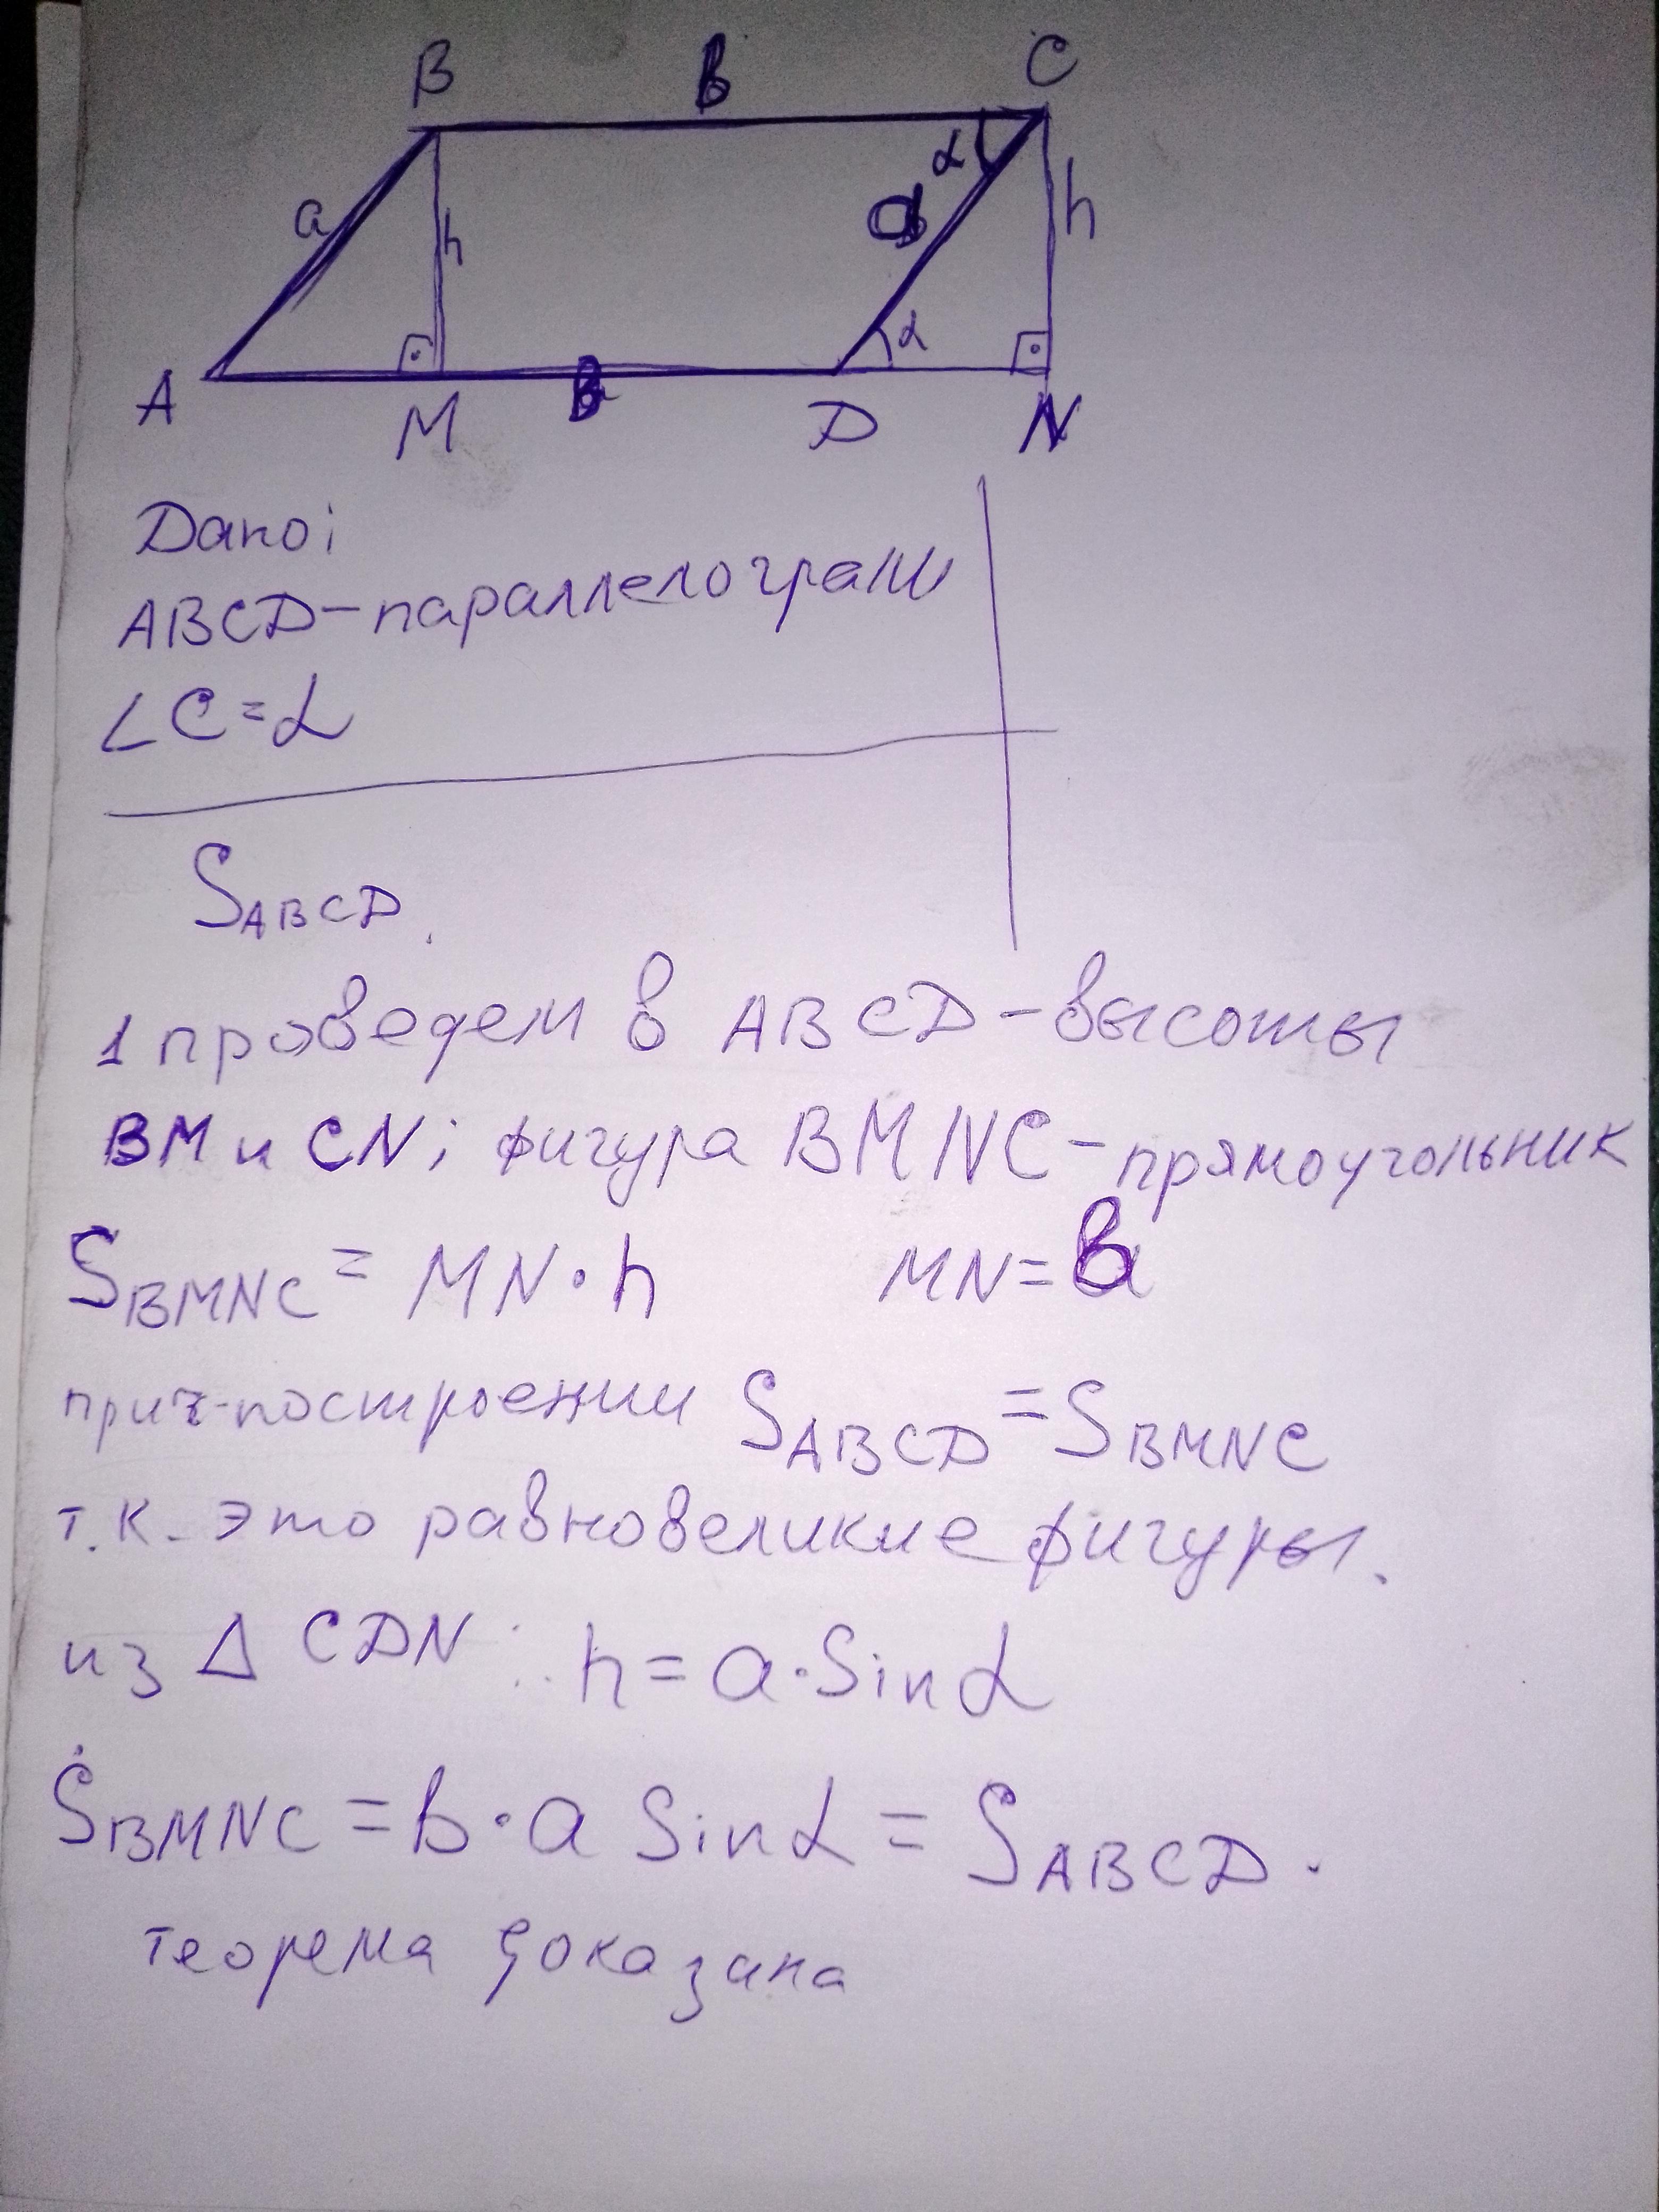 B в C
a h α a h
α
A M в D N
Дано:
ABCD-параллелограмм
∠C=α
S ABCD.
1 проведем в ABCD-высоты
BM и CN; фигура BMNC-прямоугольник
S BMNC = MN·h MN=в
построении S ABCD = S BMNC
т.к. это равновеликие фигуры.
из Δ CDN: h=a·Sinα
S BMNC = b·a Sinα = S ABCD.
теорема доказана